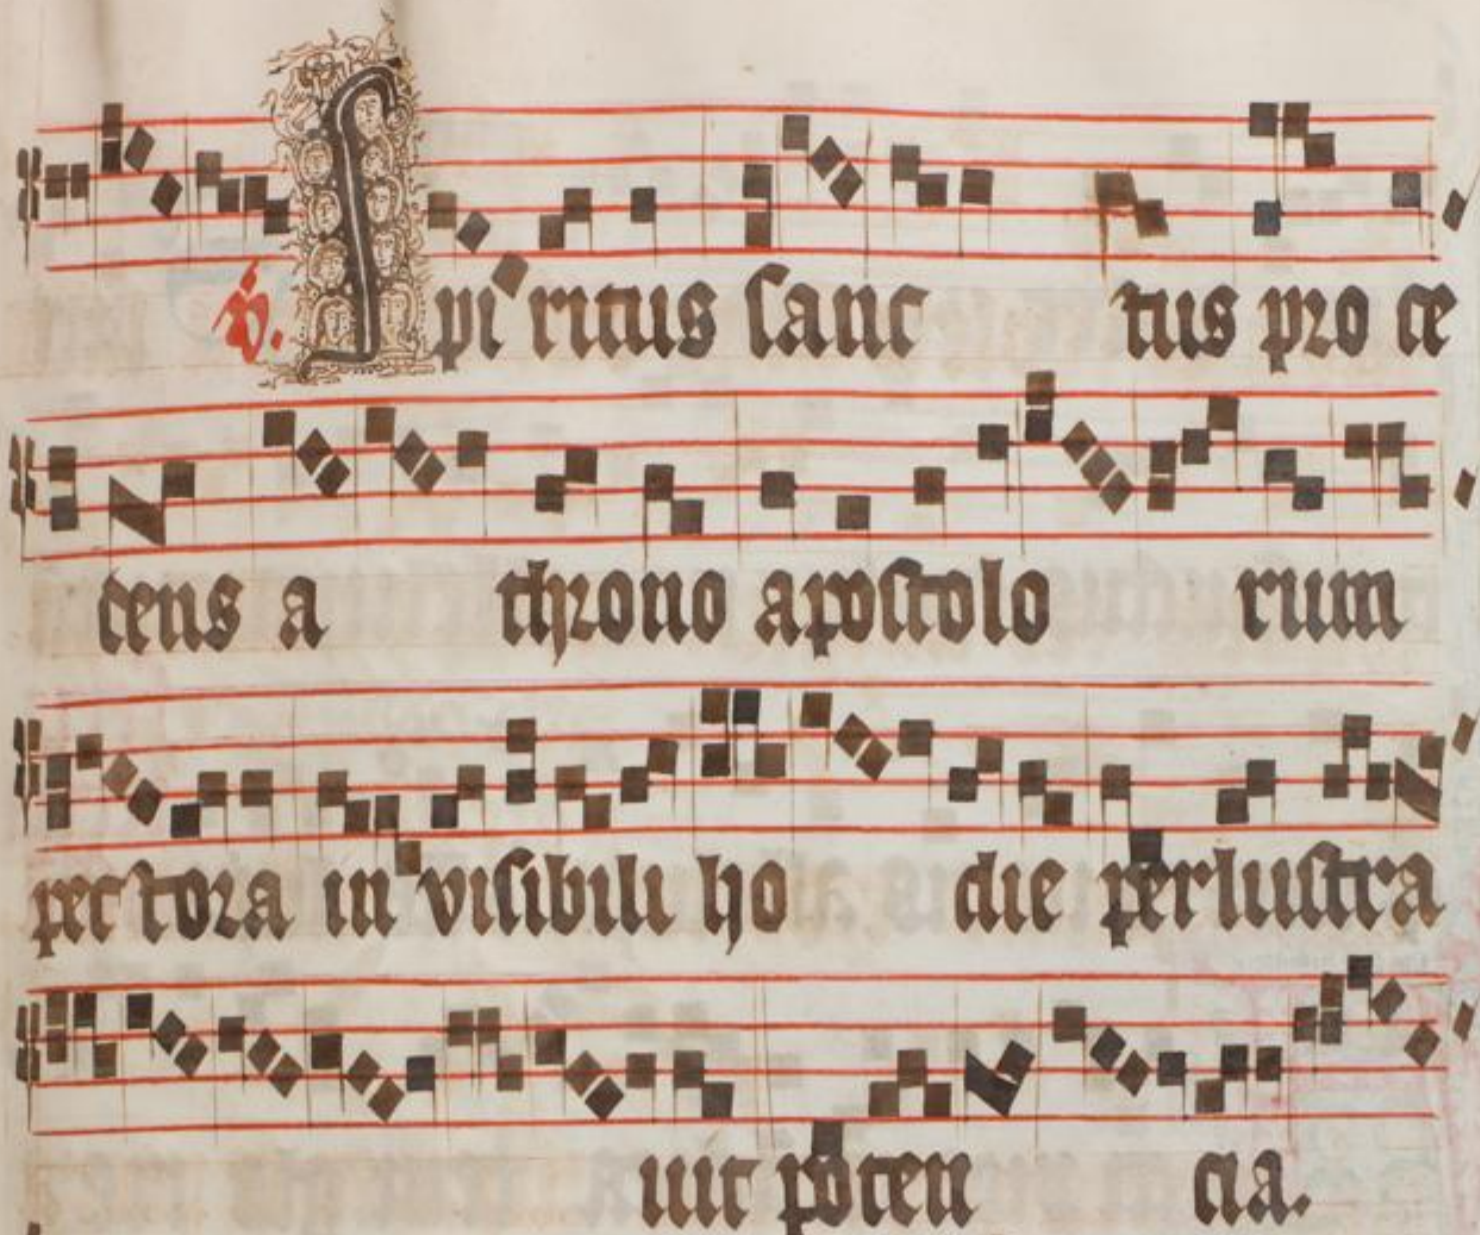 ℟. Spiritus sanc tus pro ce
dens a throno apostolo rum
pec tora in visibili ho die perlustra
uit poten cia.